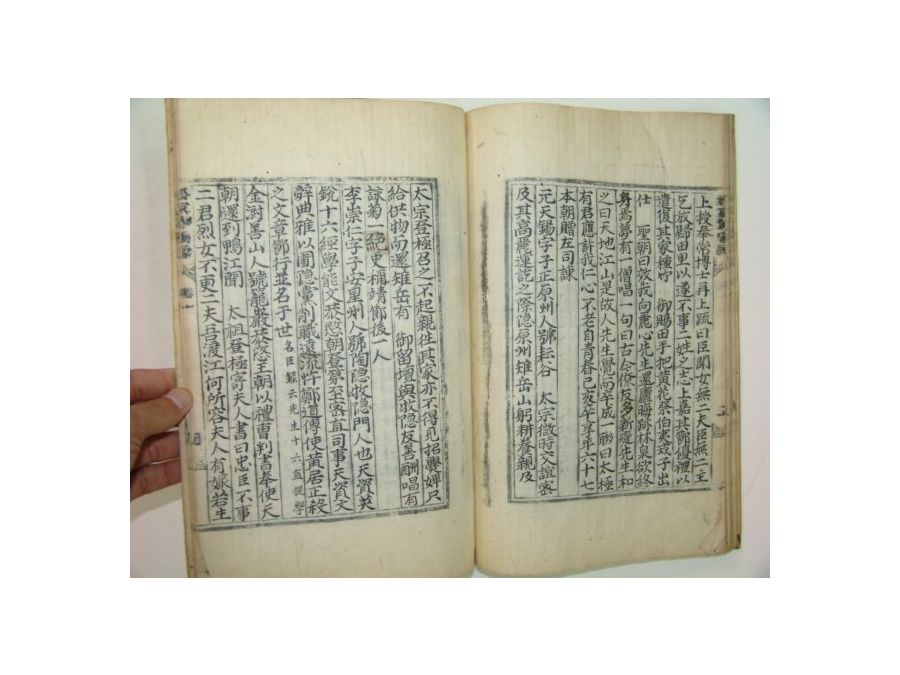 上授奉常博士再上疏曰臣聞女無二夫臣無二主
乞放歸田里以遂不事二姓之志上嘉其節優禮以
遣復其家種竹 御賜田手把黃花祭伯夷戎子出
仕 聖朝曰效我向麗心先生還廬晦跡林泉欲終
身焉夢有一僧唱一句曰古今僚友多新羅先生和
之曰天地江山是故人先生覺而卒成一聯曰太極
有君應許我仁心不老自青春己亥卒享年六十七
本朝贈左司諫
元天錫字子正原州人號耘谷 太宗微時交誼密
及其高麗運訖之際隱原州雉岳山躬耕養親及
太宗登極召之不起親往其家亦不得見招㸑婢只
給供物而還雉岳有 御留壇與牧隱友善酬唱有
詠菊一絕史稱靖節後一人
李崇仁字子安星州人號陶隱牧隱門人也天資英
銳十六經學能文恭愍朝登第至密直司事天資文
辭典雅以圃隱黨削職遠流忤鄭道傳使黃居正殺
之文章節行並名于世 名臣錄云先生十六直提學
金澍善山人號籠巖恭愍王朝以禮曹判書奉使天
朝還到鴨江聞 太祖登極寄夫人書曰忠臣不事
二君烈女不更二夫吾渡江何所容夫人有娠若生
卷一